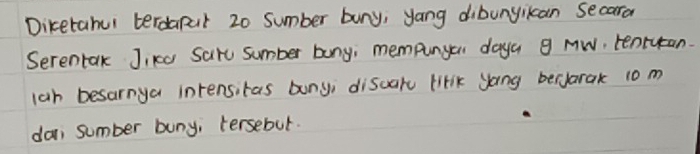 Diketahui terdapat 20 Sumber bunyi yang dibunyikan Secara
Serentak Jika Satu Sumber bunyi mempunyai daya 8 MW. tentukan-
lah besarnya intensitas bunyi disuatu titik yang berjarak 10 m
dari sumber bunyi tersebut.